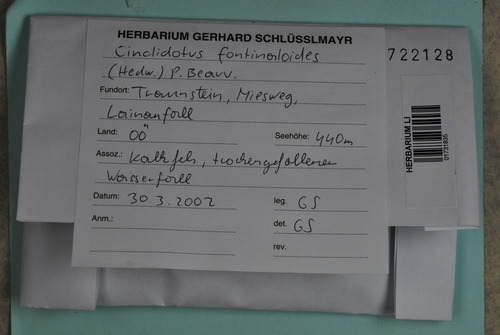 HERBARIUM GERHARD SCHLÜSSLMAYR
Cinclidotus fontinaloides
(Hedw.) P. Beauv.
Fundort: Traunstein, Miesweg,
Lainaufall
Land: OÖ Seehöhe: 440m
Assoz.: Kalkfels, trockengefallener
Wasserfall
Datum: 30.3.2002 leg. GS
Anm.: det. GS
rev.
722128
HERBARIUM LI
01731835